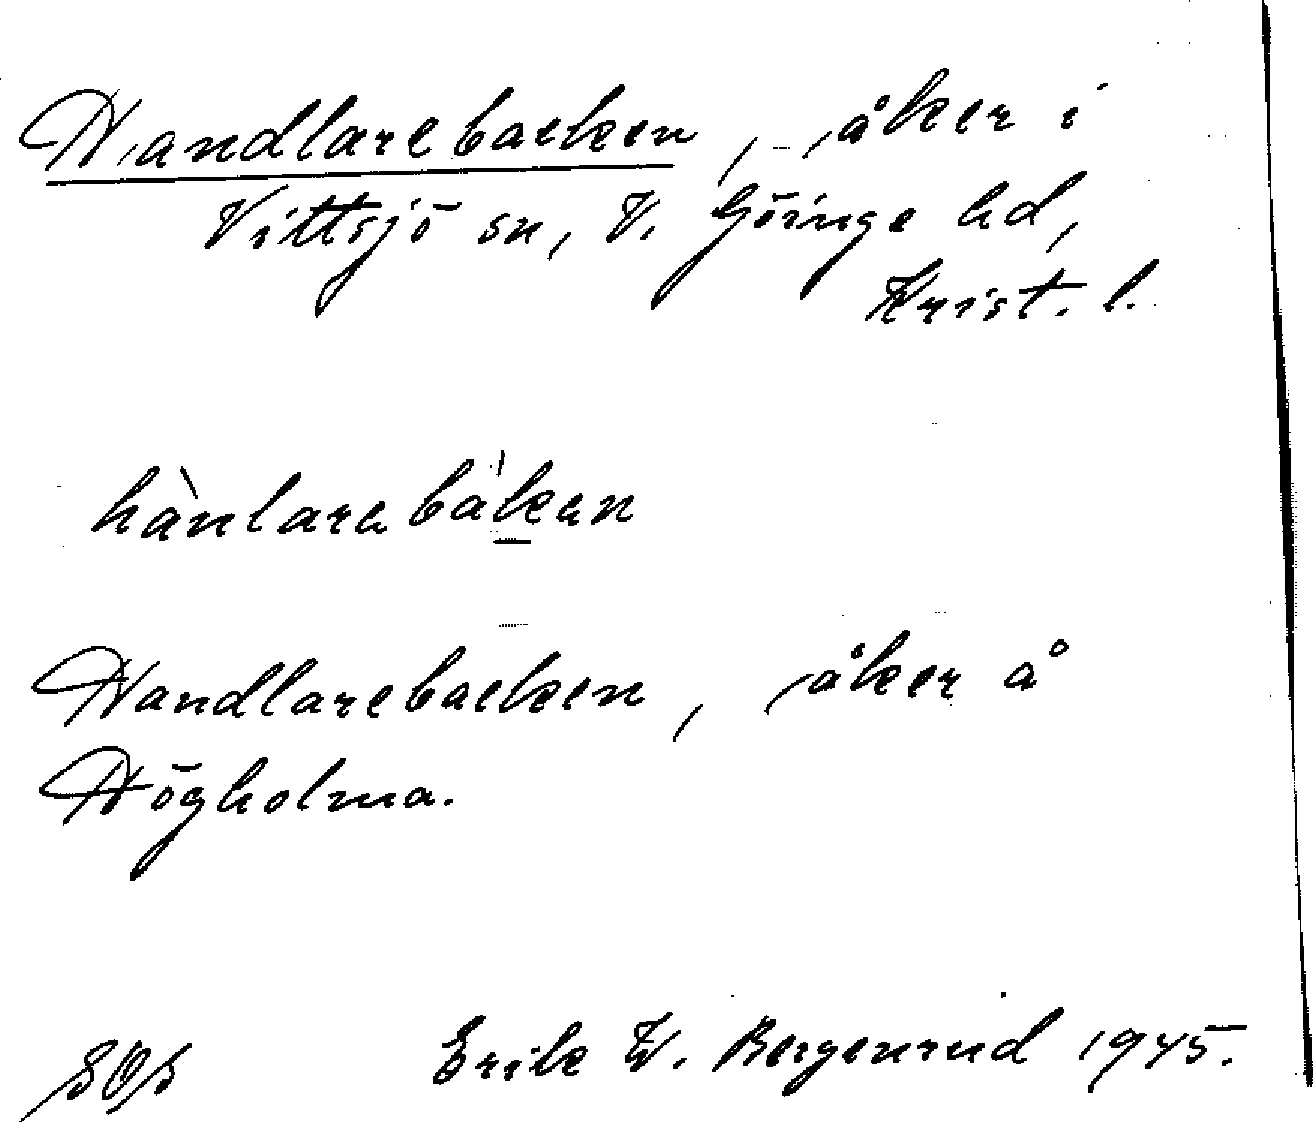 Handlarebacken, åker i
Vittsjö sn, V. Göinge hd,
Krist. l.
hànlarabák̲an
Handlarebacken, åker å
Högholma.
SOS Erik W. Bergenrud 1945.